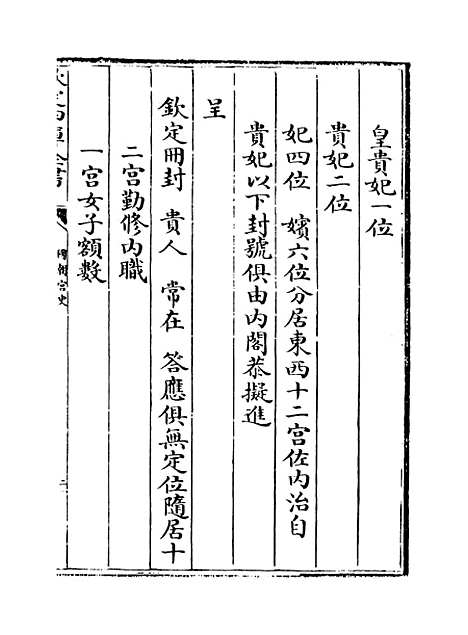 皇貴妃一位
貴妃二位
妃四位　嬪六位分居東西十二宮佐內治自
貴妃以下封號俱由內閣恭擬進
呈
欽定冊封　貴人　常在　答應俱無定位隨居十
二宮勤修內職
一宮女子額數
欽定四庫全書
國朝宮史